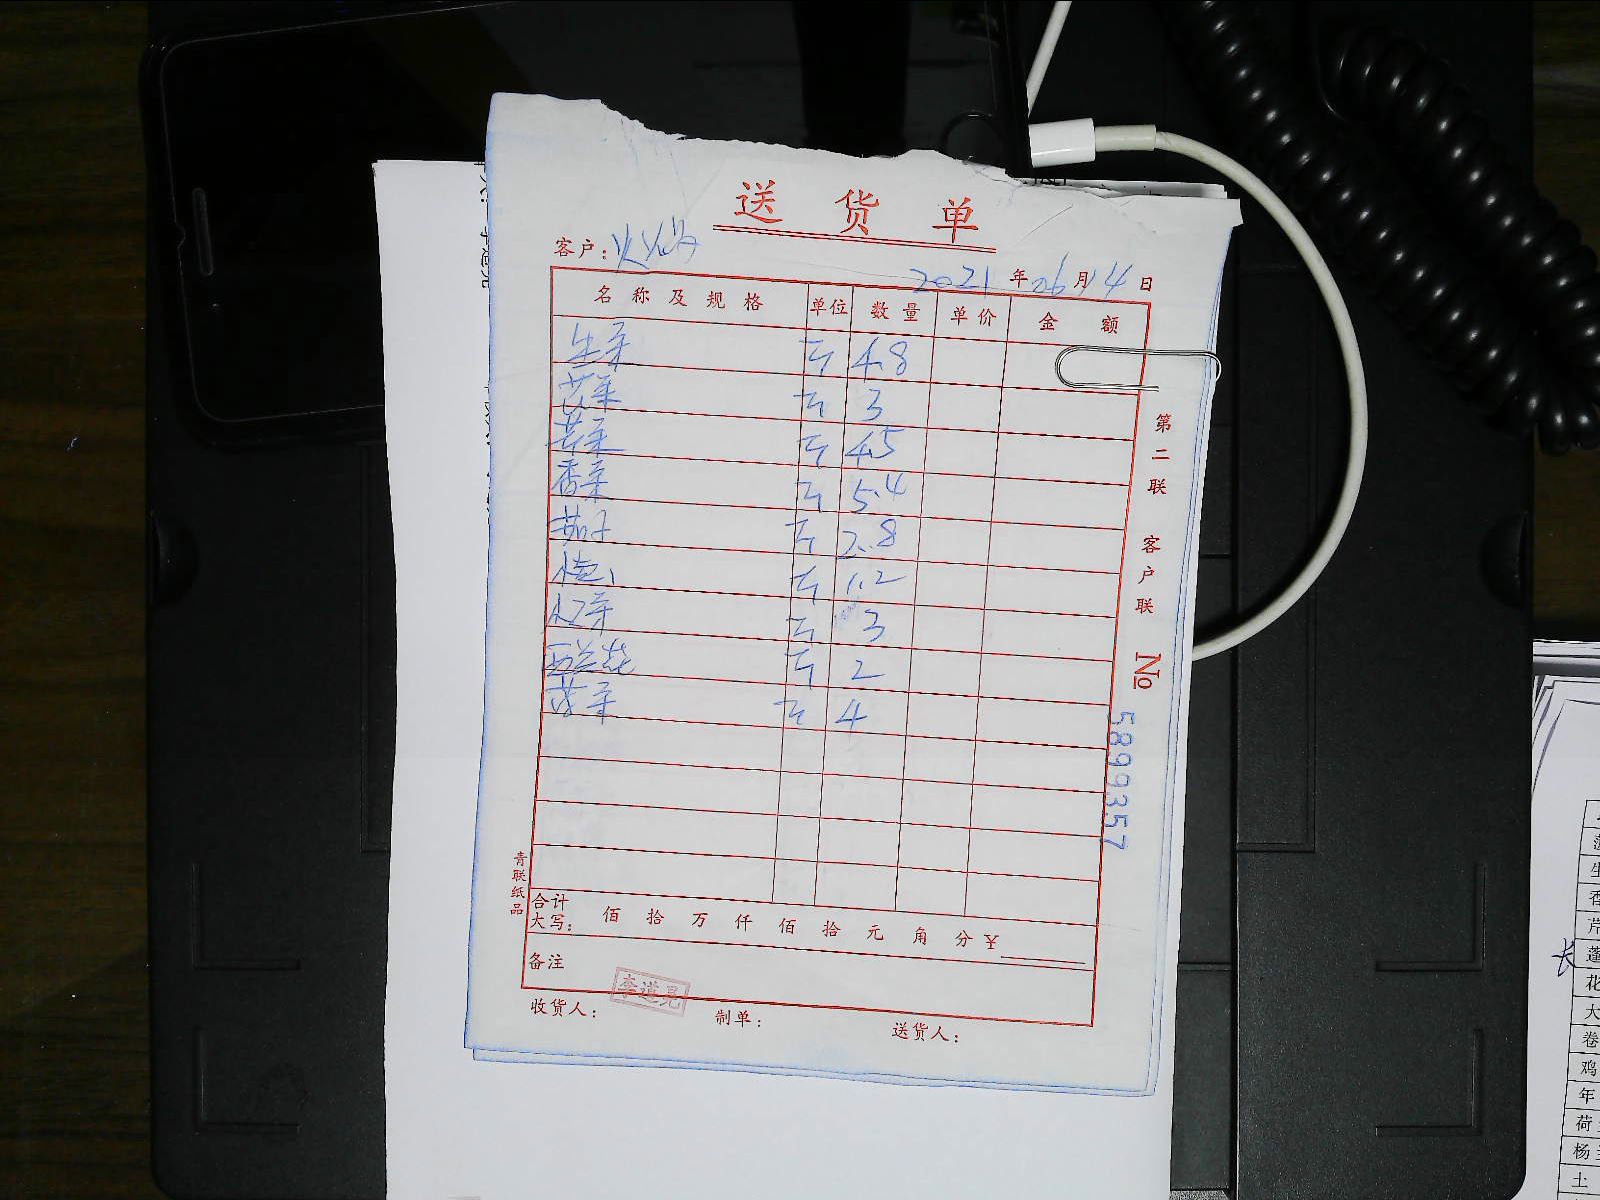 送货单
客户：火锅
2021年06月14日
名称及规格 单位 数量 单价 金额
生菜 斤 4.8
斤 3
斤 4.5
香菜 斤 5.4
茄子 斤 2.8
斤 1.2
斤 3
西兰花 斤 2
菠菜 斤 4
合计
大写： 佰 拾 万 仟 佰 拾 元 角 分 ￥
备注
李道亮
收货人： 制单： 送货人：
青联纸品
第二联 客户联 No 5899357
长
生
香
芹
蓬
花
大
卷
鸡
年
荷
杨
土